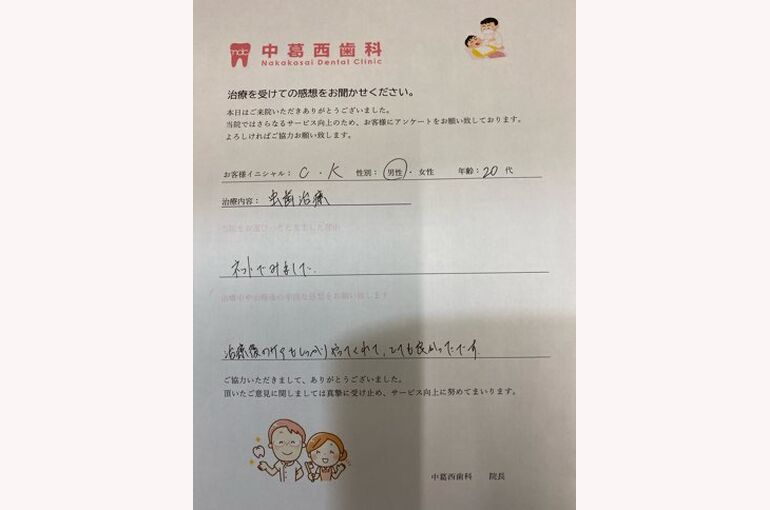 ndc 中葛西歯科
Nakakasai Dental Clinic
治療を受けての感想をお聞かせください。
本日はご来院いただきありがとうございました。
当院ではさらなるサービス向上のため、お客様にアンケートをお願い致しております。
よろしければご協力お願い致します。
お客様イニシャル： C ・ K 性別： 男性 ・ 女性 年齢： 20 代
治療内容： 虫歯治療
当院をお選びいただきました理由
ネットでみました.
治療中や治療後の率直な感想をお願い致します
治療後のケアもしっかりやってくれて、とても良かったです.
ご協力いただきまして、ありがとうございました。
頂いたご意見に関しましては真摯に受け止め、サービス向上に努めてまいります。
中葛西歯科 院長